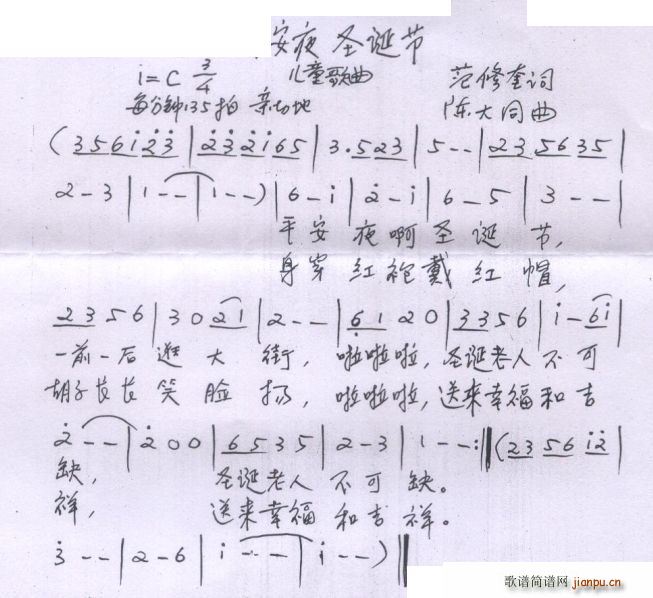 安夜 圣诞节
i=C 3/4 儿童歌曲 范修奎词
每分钟135拍 亲切地 陈大同曲
(356i23|232i65|3.523|5--|235635|
2-3|1--|1--)|6-i|2-i|6-5|3--|
平安夜啊圣诞节,
身穿红袍戴红帽,
2356|3021|2--|6120|3356|i-6i|
一前一后逛大街,啦啦啦,圣诞老人不可
胡子长长笑脸扬,啦啦啦,送来幸福和吉
2--|200|6535|2-3|1--:‖(2356i2|
缺,圣诞老人不可缺。
祥,送来幸福和吉祥。
3--|2-6|i--|i--)‖
歌谱简谱网 jianpu.cn